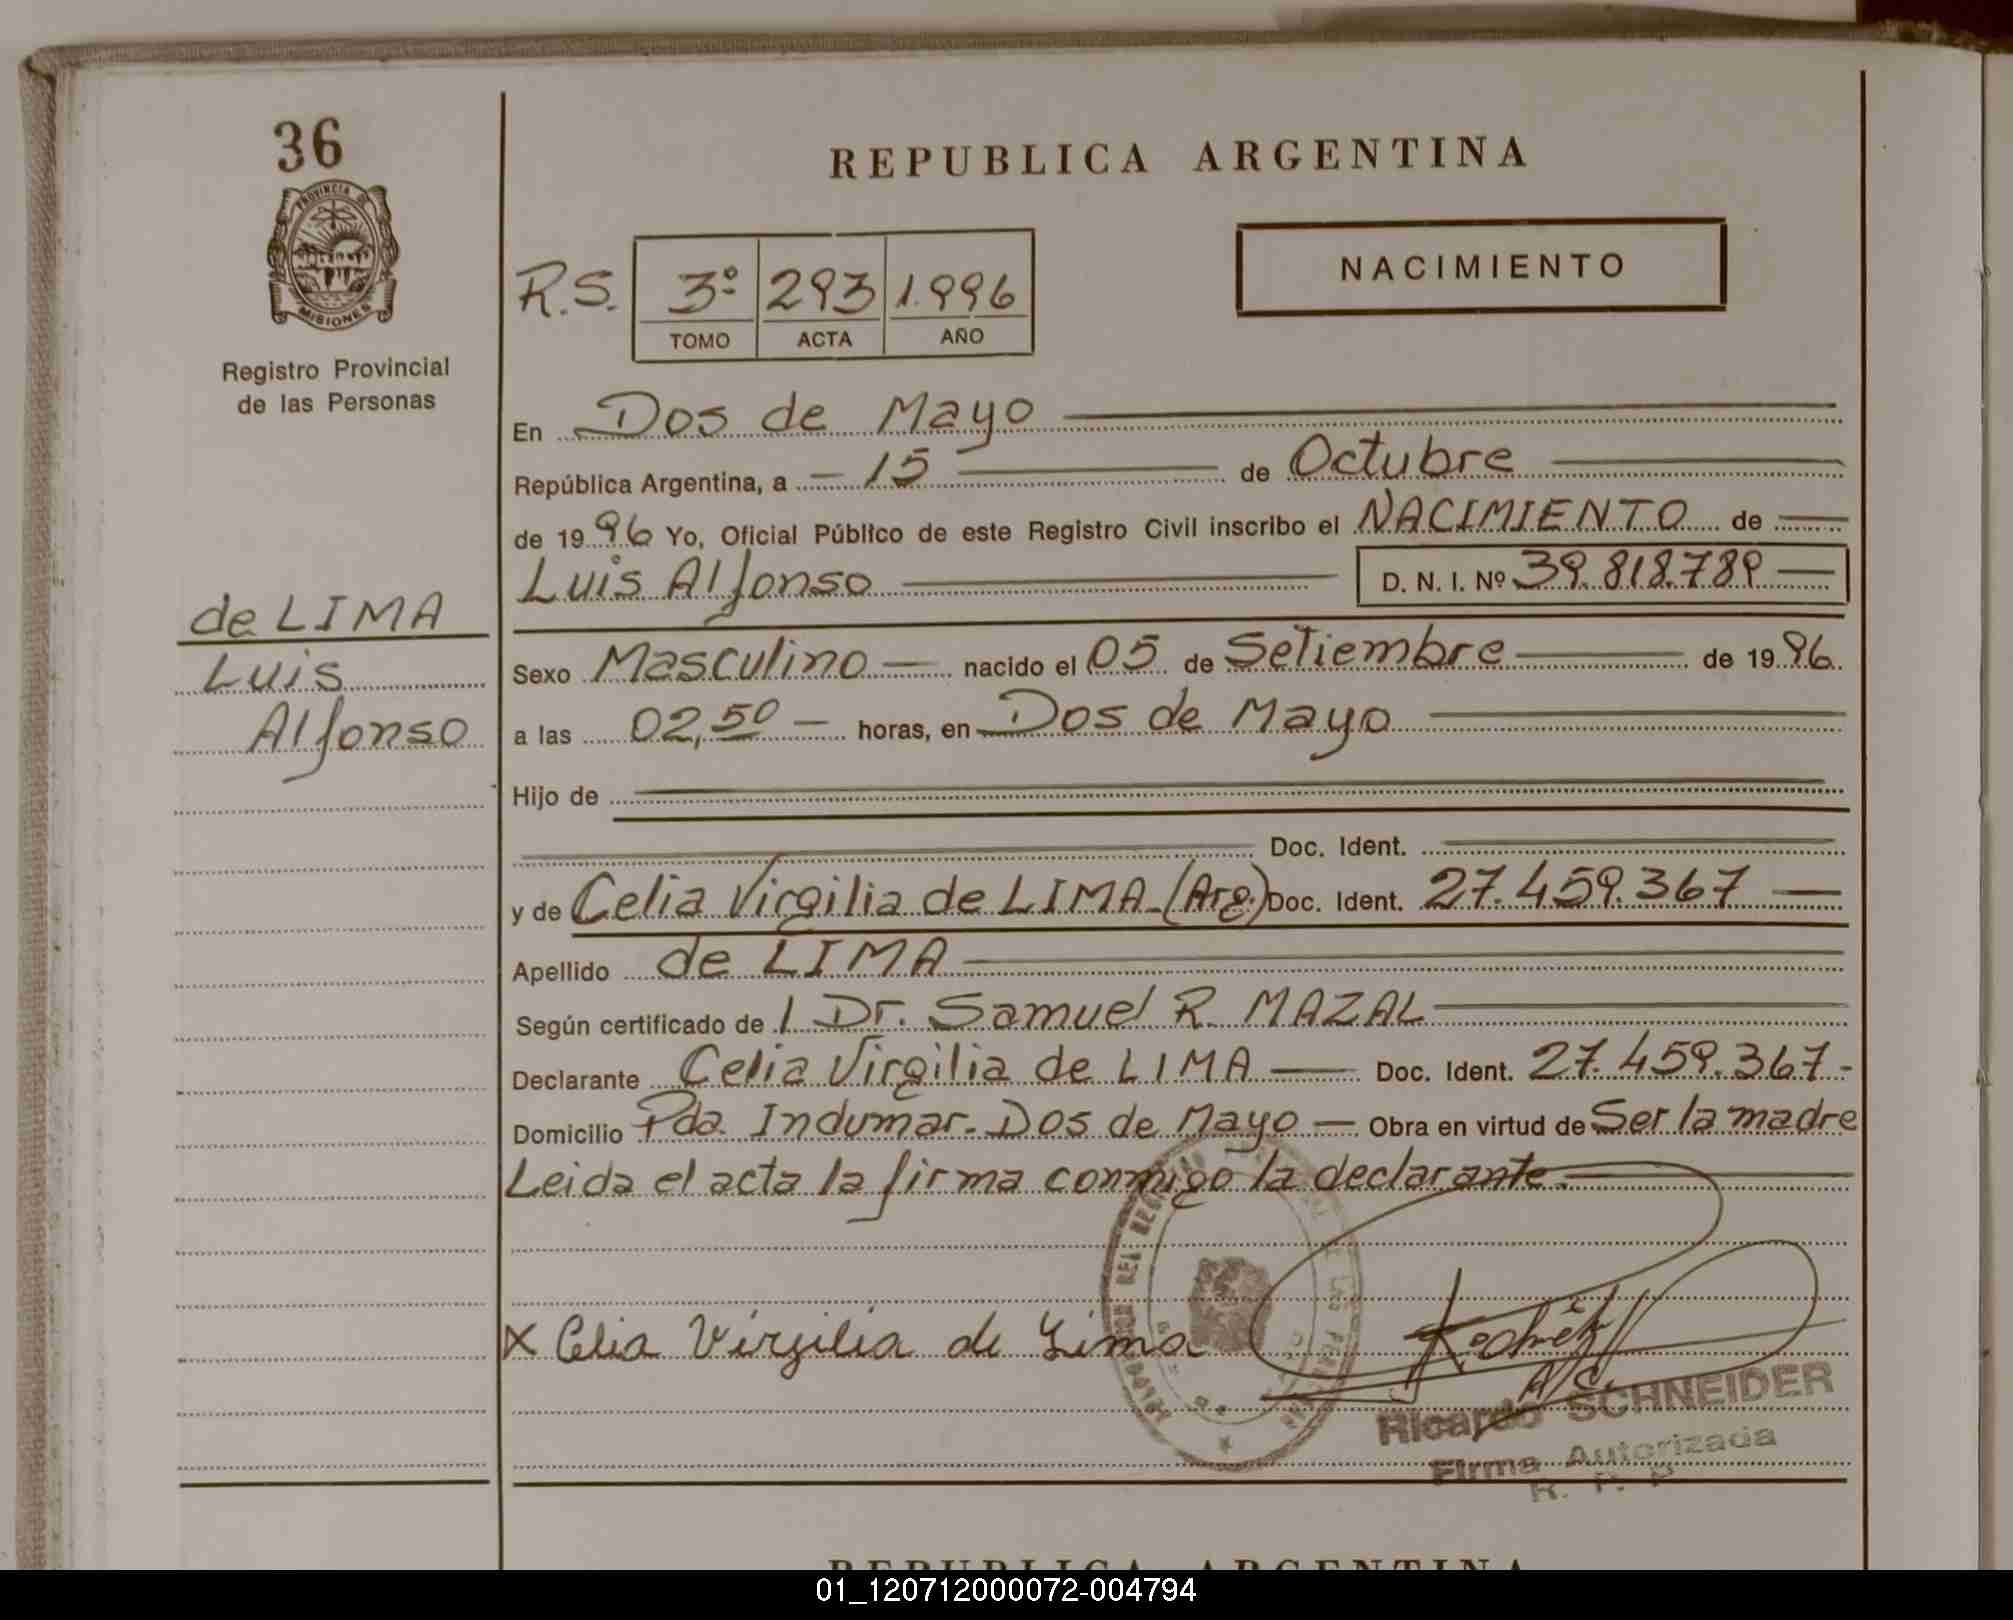 36
PROVINCIA DE
MISIONES
Registro Provincial
de las Personas
REPUBLICA ARGENTINA
NACIMIENTO
R.S. 3º 293 1.996
TOMO ACTA AÑO
En Dos de Mayo
República Argentina, a 15 de Octubre
de 1996 Yo, Oficial Público de este Registro Civil inscribo el NACIMIENTO de
Luis Alfonso D. N. I. Nº 39.818.789
de LIMA
Luis
Alfonso
Sexo Masculino nacido el 05 de Setiembre de 1996
a las 02,50 horas, en Dos de Mayo
Hijo de
Doc. Ident.
y de Celia Virgilia de LIMA (Arg.) Doc. Ident. 27.459.367
Apellido de LIMA
Según certificado de / Dr. Samuel R. MAZAL
Declarante Celia Virgilia de LIMA Doc. Ident. 27.459.367-
Domicilio Pda. Indumar. Dos de Mayo Obra en virtud de Ser la madre
Leida el acta la firma conmigo la declarante.
x Celia Virgilia de Lima
Ricardo SCHNEIDER
Firma Autorizada
R. P. P
REPUBLICA ARGENTINA
01_120712000072-004794